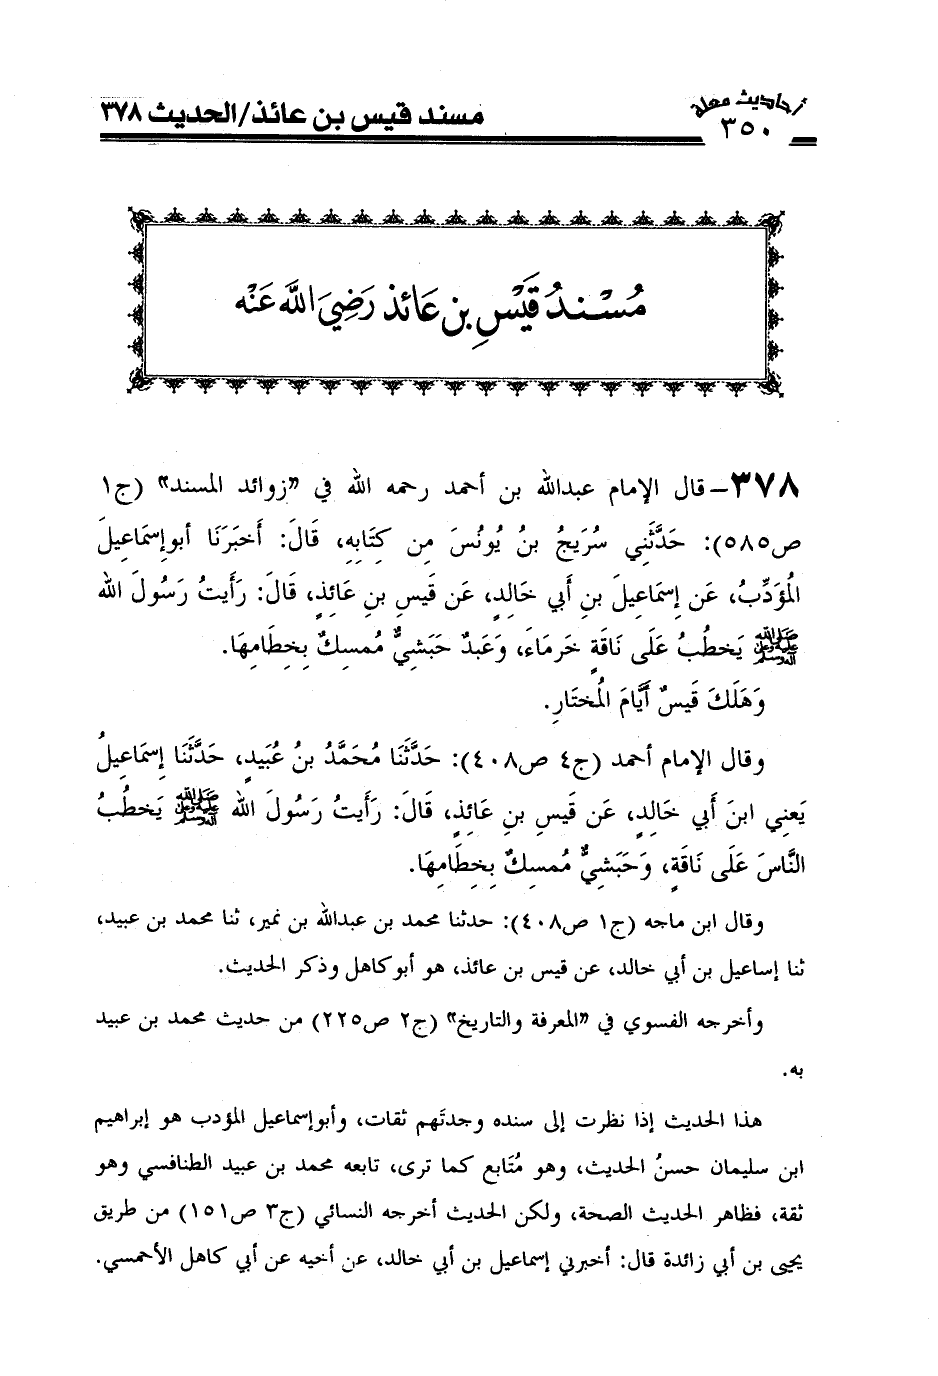 أحاديث معلة
٣٥٠
مسند قيس بن عائذ/الحديث ٣٧٨
مُسْنَدُ قَيْسِ بن عَائذ رَضِيَ اللَّه عَنْه
٣٧٨ــ قال الإمام عبدالله بن أحمد رحمه الله في «زوائد المسند» (ج١
ص٥٨٥): حَدَّثَنِي سُرَيجُ بنُ يُونُسَ مِن كِتَابِهِ، قَالَ: أَخبَرَنَا أبوإِسمَاعِيلَ
المُؤَدِّبُ، عَن إِسمَاعِيلَ بنِ أَبي خَالِدٍ، عَن قَيسِ بنِ عَائِذٍ، قَالَ: رَأَيتُ رَسُولَ الله
ﷺ يَخطُبُ عَلَى نَاقَةٍ خَرمَاءَ، وَعَبدٌ حَبَشِيٌّ مُمسِكٌ بِخِطَامِهَا.
وَهَلَكَ قَيسٌ أَيَّامَ المُختَارِ.
وقال الإمام أحمد (ج٤ ص٤٠٨): حَدَّثَنَا مُحَمَّدُ بنُ عُبَيدٍ، حَدَّثَنَا إِسمَاعِيلُ
يَعنِي ابنَ أَبي خَالِدٍ، عَن قَيسِ بنِ عَائِذٍ، قَالَ: رَأَيتُ رَسُولَ الله ﷺ يَخطُبُ
النَّاسَ عَلَى نَاقَةٍ، وَحَبَشِيٌّ مُمسِكٌ بِخِطَامِهَا.
وقال ابن ماجه (ج١ ص٤٠٨): حدثنا محمد بن عبدالله بن نمير، ثنا محمد بن عبيد،
ثنا إسماعيل بن أبي خالد، عن قيس بن عائذ، هو أبوكاهل وذكر الحديث.
وأخرجه الفسوي في «المعرفة والتاريخ» (ج٢ ص٢٢٥) من حديث محمد بن عبيد
به.
هذا الحديث إذا نظرت إلى سنده وجدتَهم ثقات، وأبوإسماعيل المؤدب هو إبراهيم
ابن سليمان حسنُ الحديث، وهو مُتَابع كما ترى، تابعه محمد بن عبيد الطنافسي وهو
ثقة، فظاهر الحديث الصحة، ولكن الحديث أخرجه النسائي (ج٣ ص١٥١) من طريق
يحيى بن أبي زائدة قال: أخبرني إسماعيل بن أبي خالد، عن أخيه عن أبي كاهل الأحمسي.